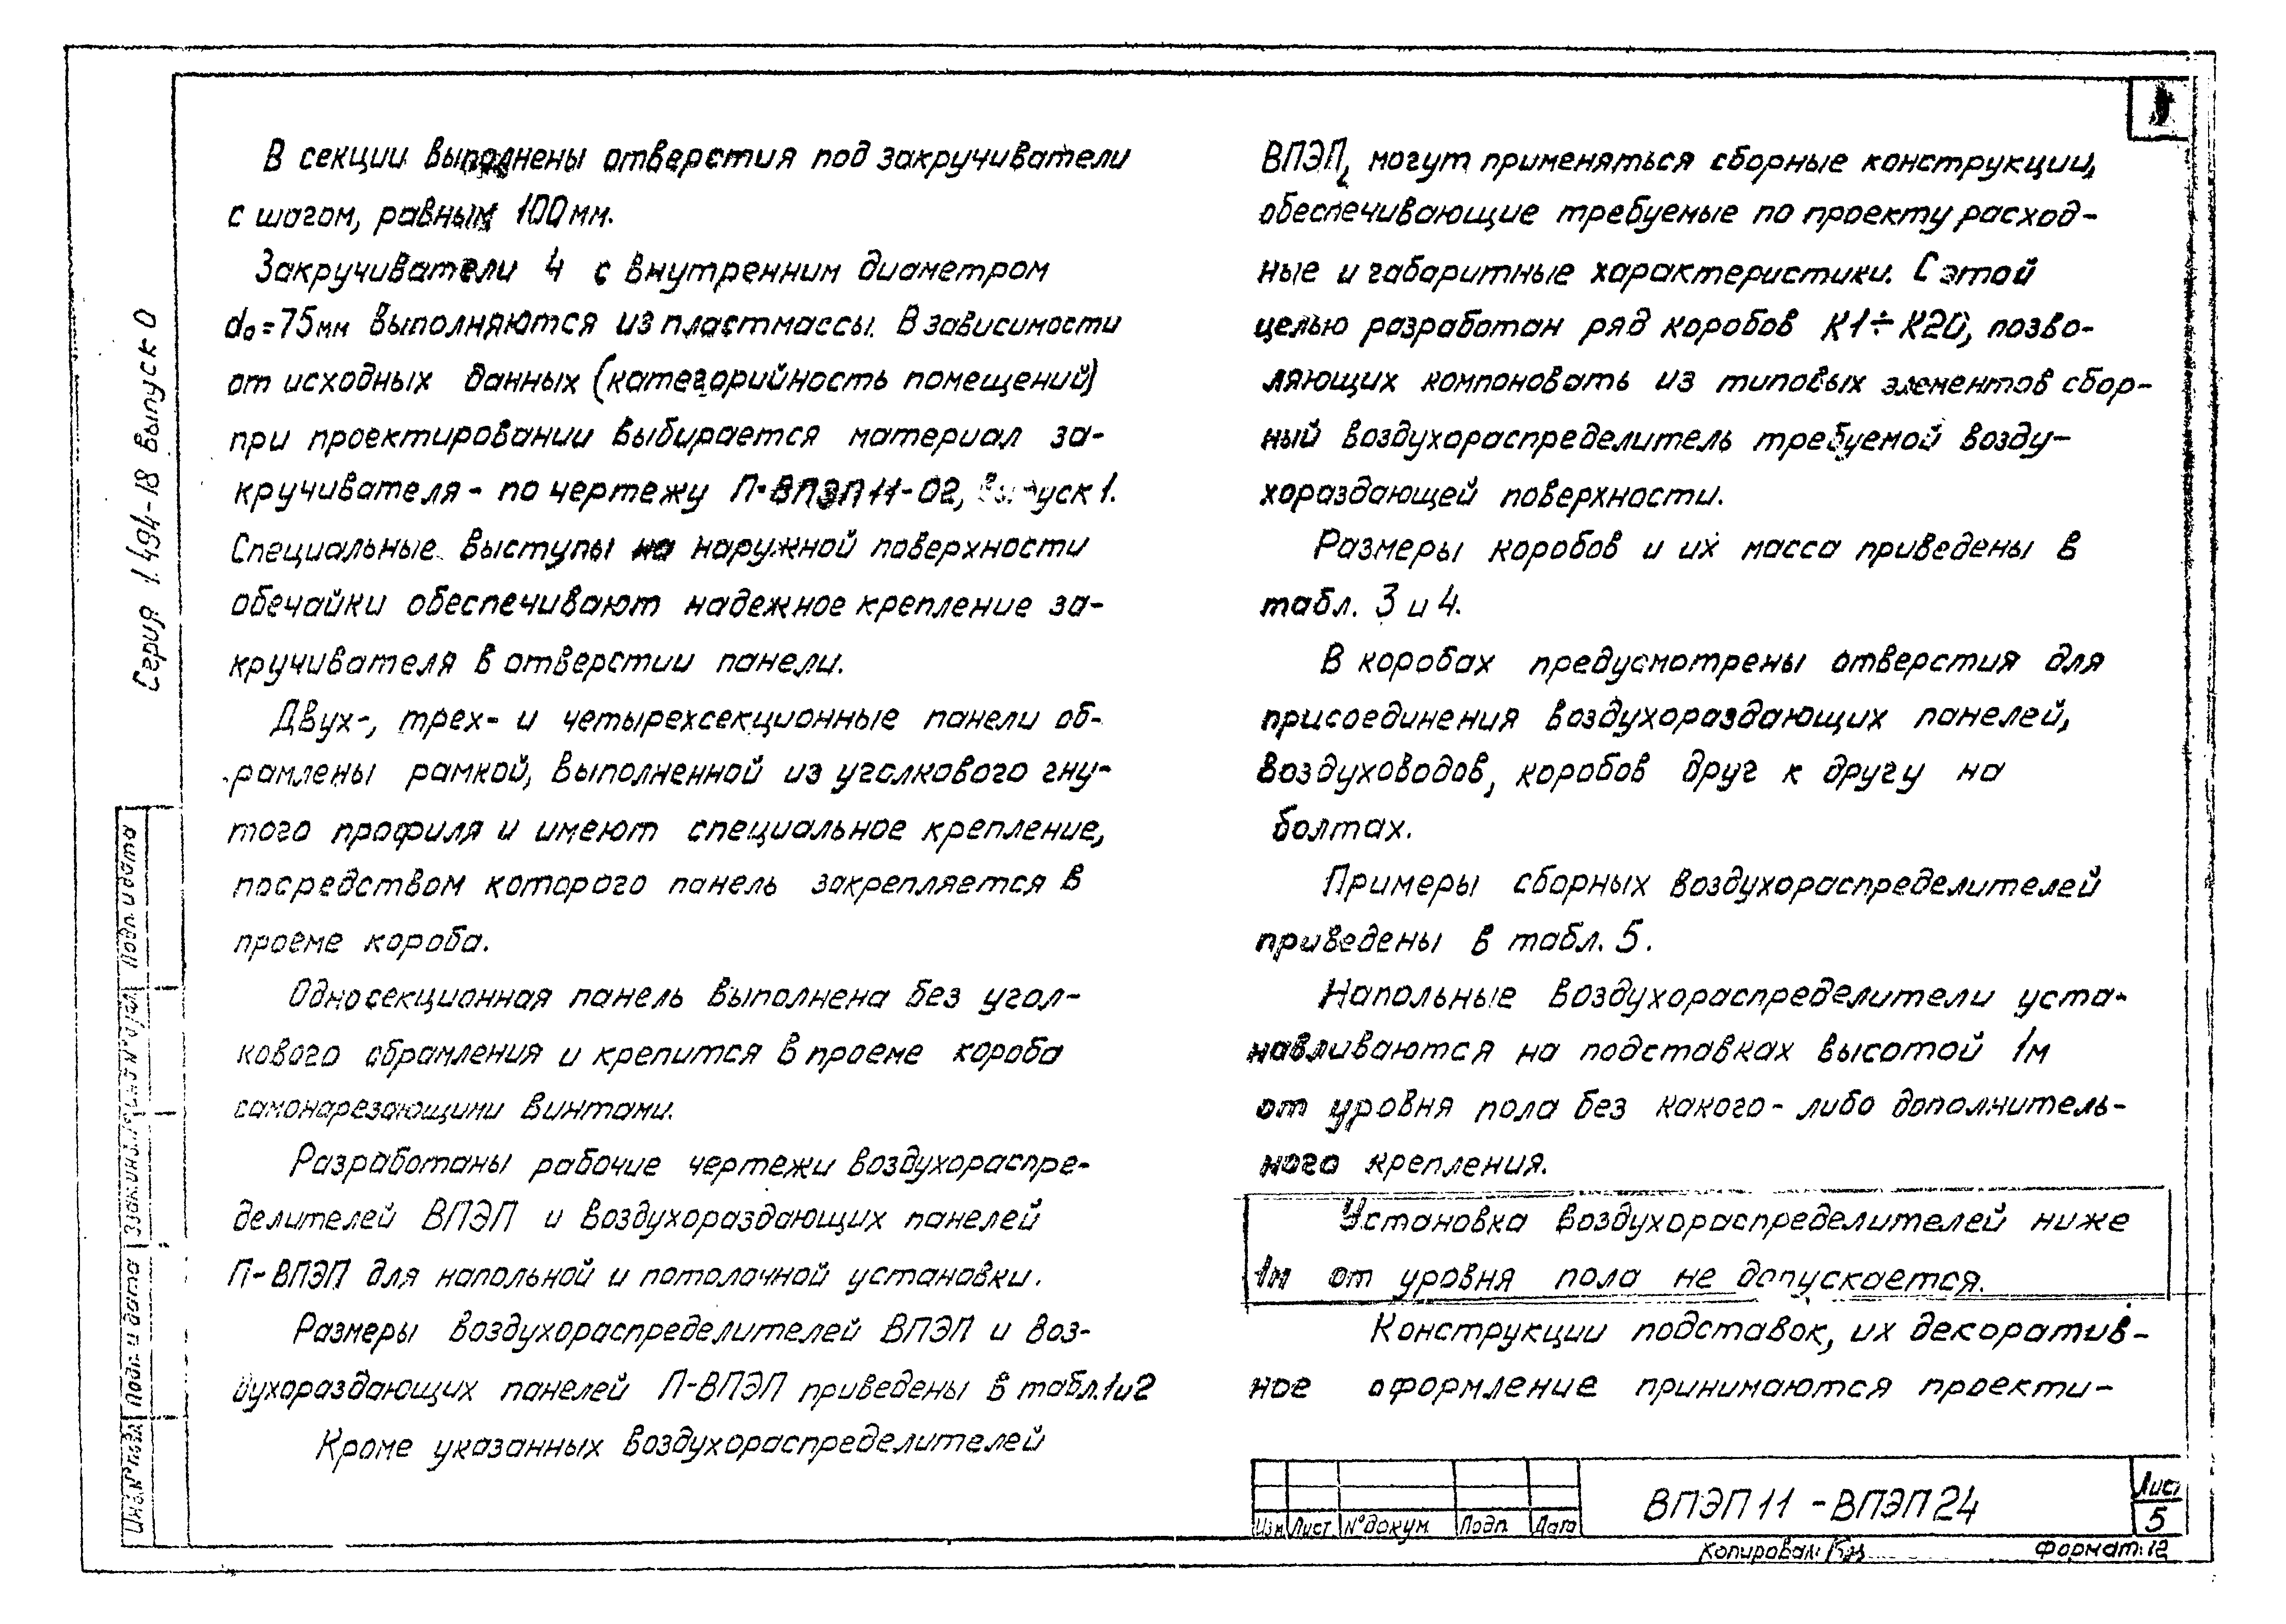 В секции выполнены отверстия под закручиватели
с шагом, равным 100мм.
Закручиватели 4 с внутренним диаметром
d₀=75мм выполняются из пластмассы. В зависимости
от исходных данных (категорийность помещений)
при проектировании выбирается материал за-
кручивателя - по чертежу П-ВПЭП11-02, выпуск 1.
Специальные выступы на наружной поверхности
обечайки обеспечивают надежное крепление за-
кручивателя в отверстии панели.
Двух-, трех- и четырехсекционные панели об-
рамлены рамкой, выполненной из уголкового гну-
того профиля и имеют специальное крепление,
посредством которого панель закрепляется в
проеме короба.
Односекционная панель выполнена без угол-
кового обрамления и крепится в проеме короба
самонарезающими винтами.
Разработаны рабочие чертежи воздухораспре-
делителей ВПЭП и воздухораздающих панелей
П-ВПЭП для напольной и потолочной установки.
Размеры воздухораспределителей ВПЭП и воз-
духораздающих панелей П-ВПЭП приведены в табл.1и2
Кроме указанных воздухораспределителей
ВПЭП, могут применяться сборные конструкции,
обеспечивающие требуемые по проекту расход-
ные и габаритные характеристики. С этой
целью разработан ряд коробов К1÷К20, позво-
ляющих компоновать из типовых элементов сбор-
ный воздухораспределитель требуемой возду-
хораздающей поверхности.
Размеры коробов и их масса приведены в
табл. 3 и 4.
В коробах предусмотрены отверстия для
присоединения воздухораздающих панелей,
воздуховодов, коробов друг к другу на
болтах.
Примеры сборных воздухораспределителей
приведены в табл. 5.
Напольные воздухораспределители уста-
навливаются на подставках высотой 1м
от уровня пола без какого-либо дополнитель-
ного крепления.
Установка воздухораспределителей ниже
1м от уровня пола не допускается.
Конструкции подставок, их декоратив-
ное оформление принимаются проекти-
Серия 1.494-18 выпуск 0
Подп. и дата
Взам.инв.№
Подп. и дата
Изм Лист №докум. Подп. Дата
ВПЭП11 - ВПЭП24
Лист
5
Копировал
Формат: 12